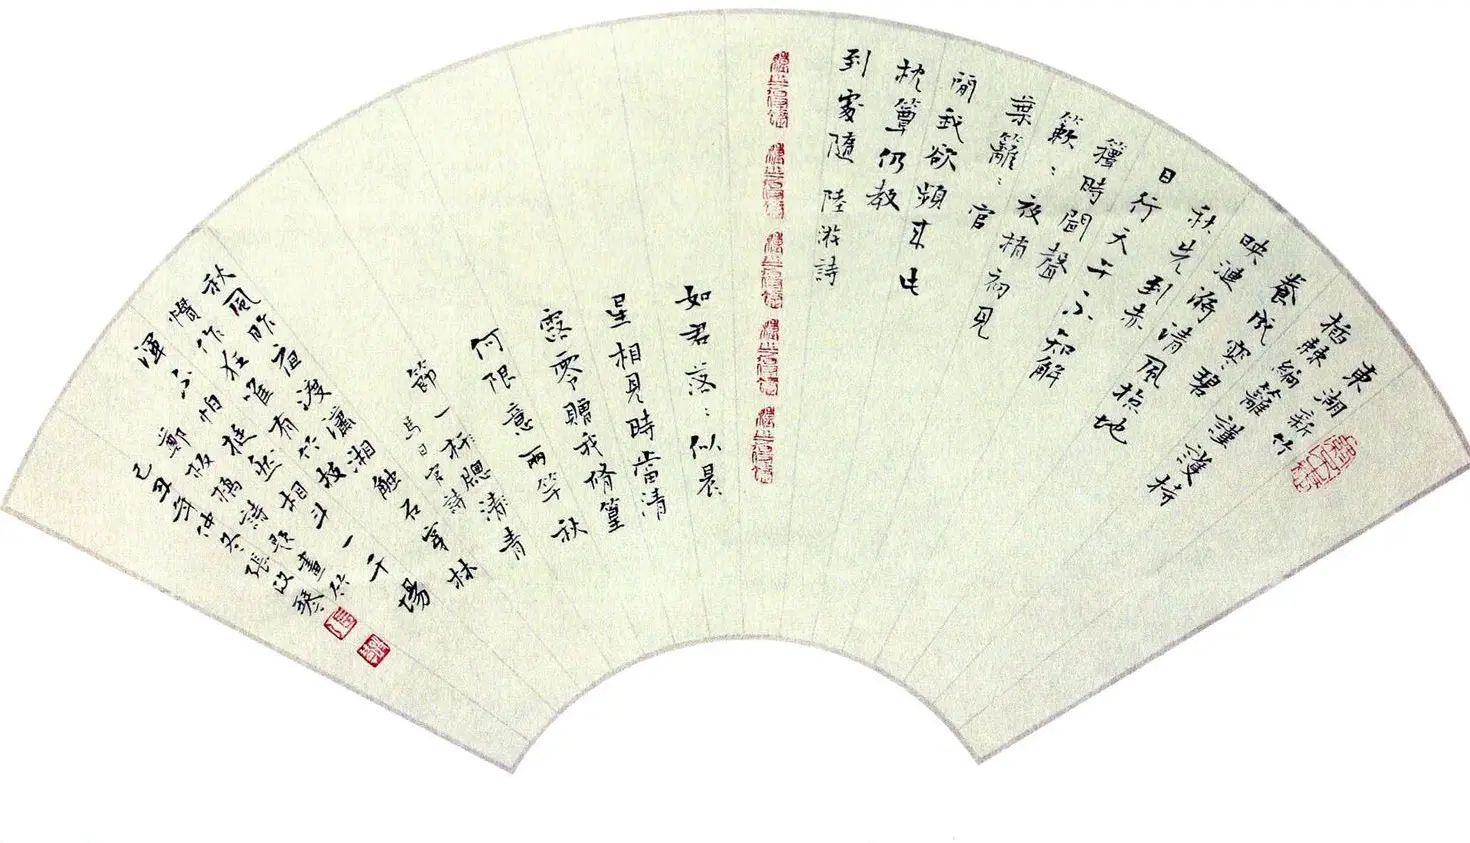 東湖新竹
插棘編籬謹護持
養成寒碧
映漣漪清風掠地
秋先到赤
日行天午不知解
籜時聞聲
簌:放梢初見
葉籬:官
閒我欲頻來此
枕簟仍教
到處隨 陸游詩
如君落:似晨
星相見時當清
露零贈我脩篁
何限意兩竿秋
節一青
馬曰官詩
秋風昨夜渡瀟湘觸石穿林
慣作狂唯有竹枝
渾不怕挺然相斗一千場
鄭板橋詩題畫竹
己丑年仲冬張政琴